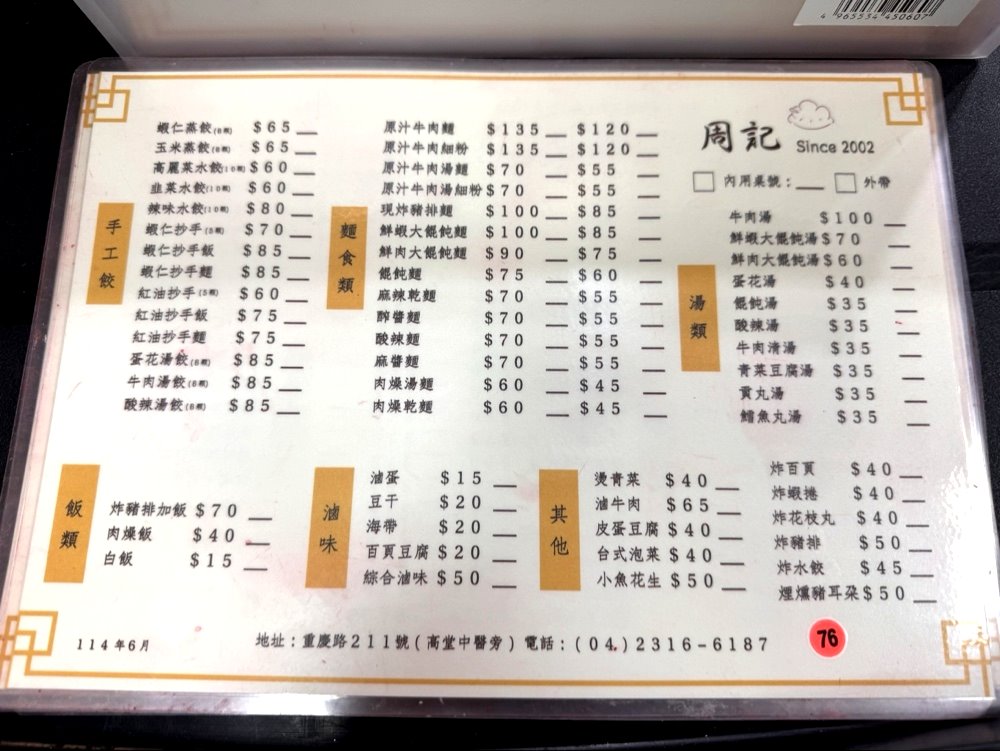 4 965534 450607
周記
Since 2002
內用桌號：
外帶
手工餃
蝦仁蒸餃(8顆) $65
玉米蒸餃(8顆) $65
高麗菜水餃(10顆) $60
韭菜水餃(10顆) $60
辣味水餃(10顆) $80
蝦仁抄手(5顆) $70
蝦仁抄手飯 $85
蝦仁抄手麵 $85
紅油抄手(5顆) $60
紅油抄手飯 $75
紅油抄手麵 $75
蛋花湯餃(8顆) $85
牛肉湯餃(8顆) $85
酸辣湯餃(8顆) $85
麵食類
原汁牛肉麵 $135 $120
原汁牛肉細粉 $135 $120
原汁牛肉湯麵 $70 $55
原汁牛肉湯細粉 $70 $55
現炸豬排麵 $100 $85
鮮蝦大餛飩麵 $100 $85
鮮肉大餛飩麵 $90 $75
餛飩麵 $75 $60
麻辣乾麵 $70 $55
醡醬麵 $70 $55
酸辣麵 $70 $55
麻醬麵 $70 $55
肉燥湯麵 $60 $45
肉燥乾麵 $60 $45
湯類
牛肉湯 $100
鮮蝦大餛飩湯 $70
鮮肉大餛飩湯 $60
蛋花湯 $40
餛飩湯 $35
酸辣湯 $35
牛肉清湯 $35
青菜豆腐湯 $35
貢丸湯 $35
鱈魚丸湯 $35
飯類
炸豬排加飯 $70
肉燥飯 $40
白飯 $15
滷味
滷蛋 $15
豆干 $20
海帶 $20
百頁豆腐 $20
綜合滷味 $50
其他
燙青菜 $40
滷牛肉 $65
皮蛋豆腐 $40
台式泡菜 $40
小魚花生 $50
炸百頁 $40
炸蝦捲 $40
炸花枝丸 $40
炸豬排 $50
炸水餃 $45
煙燻豬耳朵 $50
114年6月
地址：重慶路211號(高堂中醫旁) 電話：(04)2316-6187
76